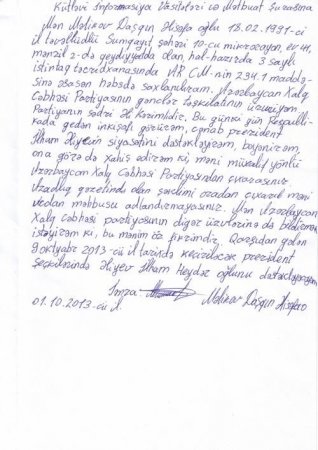 Kütləvi İnformasiya Vasitələri və Mətbuat Şurasına
Mən Məlikov Daşqın Əsəfa oğlu 18.02.1991-ci
il təvəllüdlü Sumqayıt şəhəri 10-cu mikrorayon, ev 41,
mənzil 2-də qeydiyyatda olan, hal-hazırda 3 saylı
istintaq təcridxanasında AR CM-nin 234.1 maddə-
sinə əsasən həbsdə saxlanılıram. Azərbaycan Xalq
Cəbhəsi Partiyasının gənclər təşkilatının üzvüyəm
Partiyanın sədri Ə. Kərimlidir. Bu günkü gün Respubli-
kada gedən inkişafı görürəm, cənab prezident
İlham Əliyevin siyasətini dəstəkləyirəm, bəyənirəm,
ona görə də xahiş edirəm ki, məni müxalif yönlü
Azərbaycan Xalq Cəbhəsi Partiyasından çıxarasınız
Azadlıq qəzetində olan şəklimi oradan çıxarıb məni
vicdan məhbusu adlandırmayasınız. Mən Azərbaycan
Xalq Cəbhəsi partiyasının digər üzvlərinə də bildirmək
istəyirəm ki, bu mənim öz fikrimdir. Qarşıdan gələn
9 oktyabr 2013-cü il tarixdə keçiriləcək prezident
seçkilərində Əliyev İlham Heydər oğlunu dəstəkləyirəm
İmza
Məlikov Daşqın Əsəfa
01.10.2013-cü il.